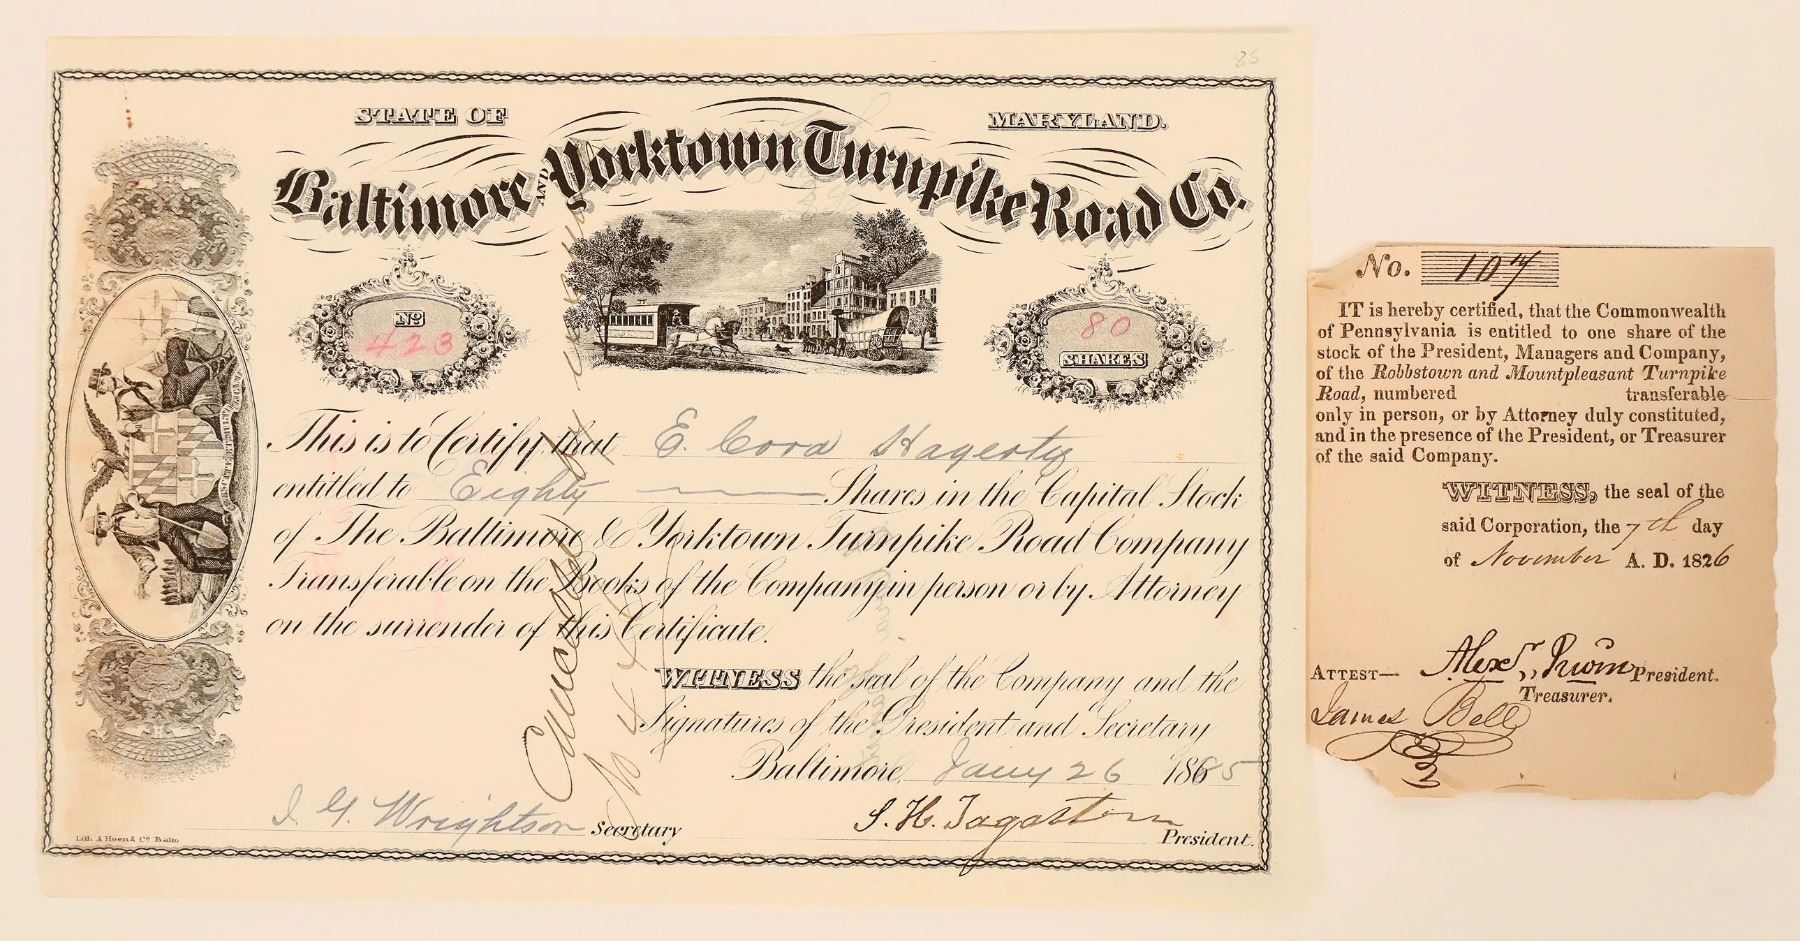 85
STATE OF MARYLAND.
Baltimore AND Yorktown Turnpike Road Co.
No 423
80 SHARES
This is to Certify that E. Cora Hagerty
entitled to Eighty Shares in the Capital Stock
of The Baltimore & Yorktown Turnpike Road Company
Transferable on the Books of the Company in person or by Attorney
on the surrender of this Certificate.
WITNESS the seal of the Company and the
Signatures of the President and Secretary
Baltimore, Jany 26 1885
Wrightson Secretary
S. H. Tagart President.
Lith. A Hoen & Co. Balto
Cancelled
No. 107
IT is hereby certified, that the Commonwealth
of Pennsylvania is entitled to one share of the
stock of the President, Managers and Company,
of the Robbstown and Mountpleasant Turnpike
Road, numbered transferable
only in person, or by Attorney duly constituted,
and in the presence of the President, or Treasurer
of the said Company.
WITNESS, the seal of the
said Corporation, the 7th day
of November A. D. 1826
ATTEST— Alexr. Irwin President.
Treasurer.
James Bell